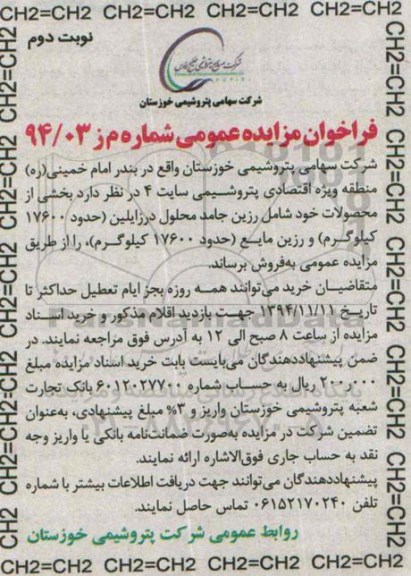 CH2=CH2 CH2=CH2 CH2=CH2 CH2=CH2
نوبت دوم
شرکت سهامی پتروشیمی خوزستان
فراخوان مزایده عمومی شماره م ز ۹۴/۰۳
شرکت سهامی پتروشیمی خوزستان واقع در بندر امام خمینی(ره)
منطقه ویژه اقتصادی پتروشیمی سایت ۴ در نظر دارد بخشی از
محصولات خود شامل رزین جامد محلول درزایلین (حدود ۱۷۶۰۰
کیلوگرم) و رزین مایع (حدود ۱۷۶۰۰ کیلوگرم)، را از طریق
مزایده عمومی به‌فروش برساند.
متقاضیان خرید می‌توانند همه روزه بجز ایام تعطیل حداکثر تا
تاریخ ۱۳۹۴/۱۱/۱۱ جهت بازدید اقلام مذکور و خرید اسناد
مزایده از ساعت ۸ صبح الی ۱۲ به آدرس فوق مراجعه نمایند. در
ضمن پیشنهاددهندگان می‌بایست بابت خرید اسناد مزایده مبلغ
۲۰۰ر۰۰۰ ریال به حساب شماره ۶۰۱۲۰۲۷۷۰۰ بانک تجارت
شعبه پتروشیمی خوزستان واریز و ۳% مبلغ پیشنهادی، به‌عنوان
تضمین شرکت در مزایده به‌صورت ضمانت‌نامه بانکی یا واریز وجه
نقد به حساب جاری فوق‌الاشاره ارائه نمایند.
پیشنهاددهندگان می‌توانند جهت دریافت اطلاعات بیشتر با شماره
تلفن ۰۶۱۵۲۱۷۰۲۴۰ تماس حاصل نمایند.
روابط عمومی شرکت پتروشیمی خوزستان
CH2=CH2 CH2=CH2 CH2=CH2 CH2=CH2